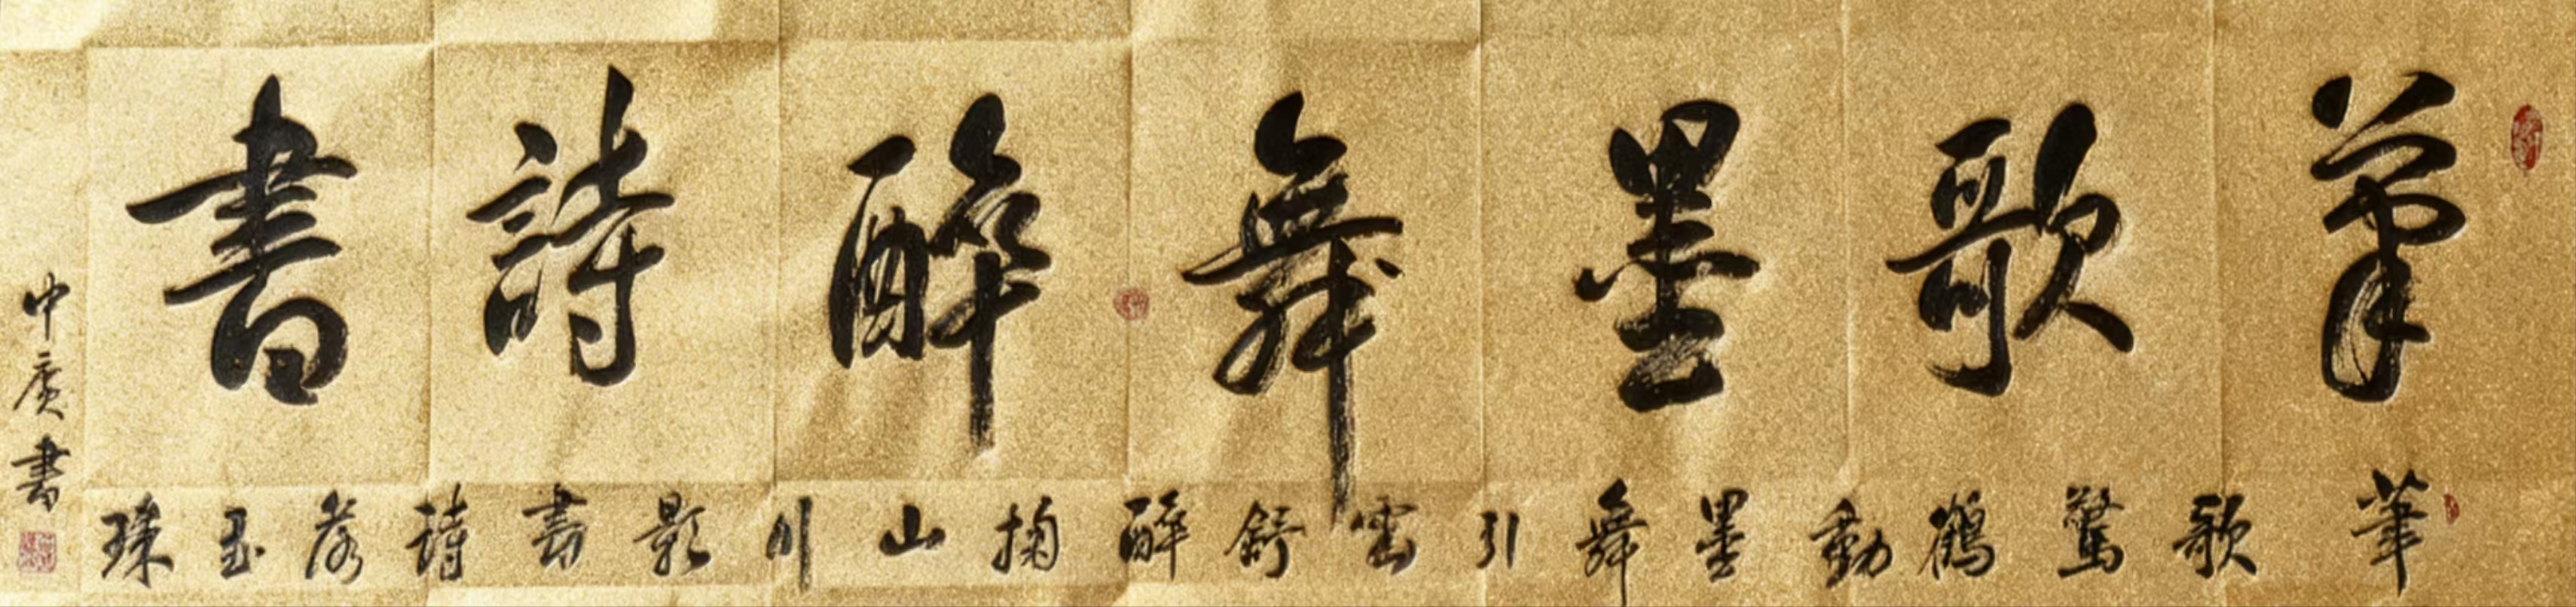 筆歌墨舞醉詩書
筆歌驚鶴動墨舞引雲舒醉掬山川影書詩落玉珠
中廣書